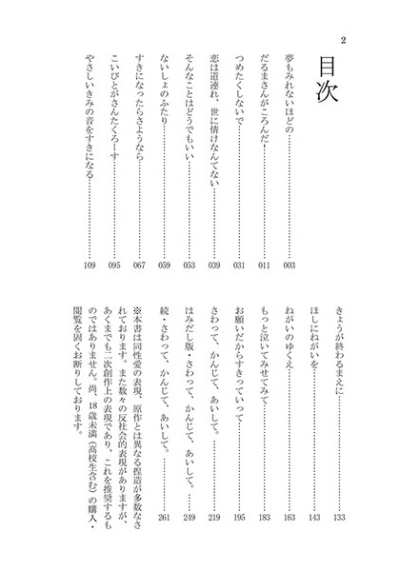 2
目次
夢もみれないほどの……………………003
だるまさんがころんだ！……………………011
つめたくしないで……………………031
恋は道連れ、世に情けなんてない……………………039
そんなことはどうでもいい……………………053
ないしょのふたり……………………059
すきになったらさようなら……………………067
こいびとがさんたくろーす……………………095
やさしいきみの音をすきになる……………………109
きょうが終わるまえに……………………133
ほしにねがいを……………………143
ねがいのゆくえ……………………163
もっと泣いてみせてみて……………………183
お願いだからすきっていって……………………195
さわって、かんじて、あいして。……………………219
はみだし版・さわって、かんじて、あいして。……………………249
続・さわって、かんじて、あいして。……………………261
※本書は同性愛の表現、原作とは異なる捏造が多数なさ
れております。また数々の反社会的表現がありますが、
あくまでも二次創作上の表現であり、これを推奨するも
のではありません。尚、18歳未満（高校生含む）の購入・
閲覧を固くお断りしております。